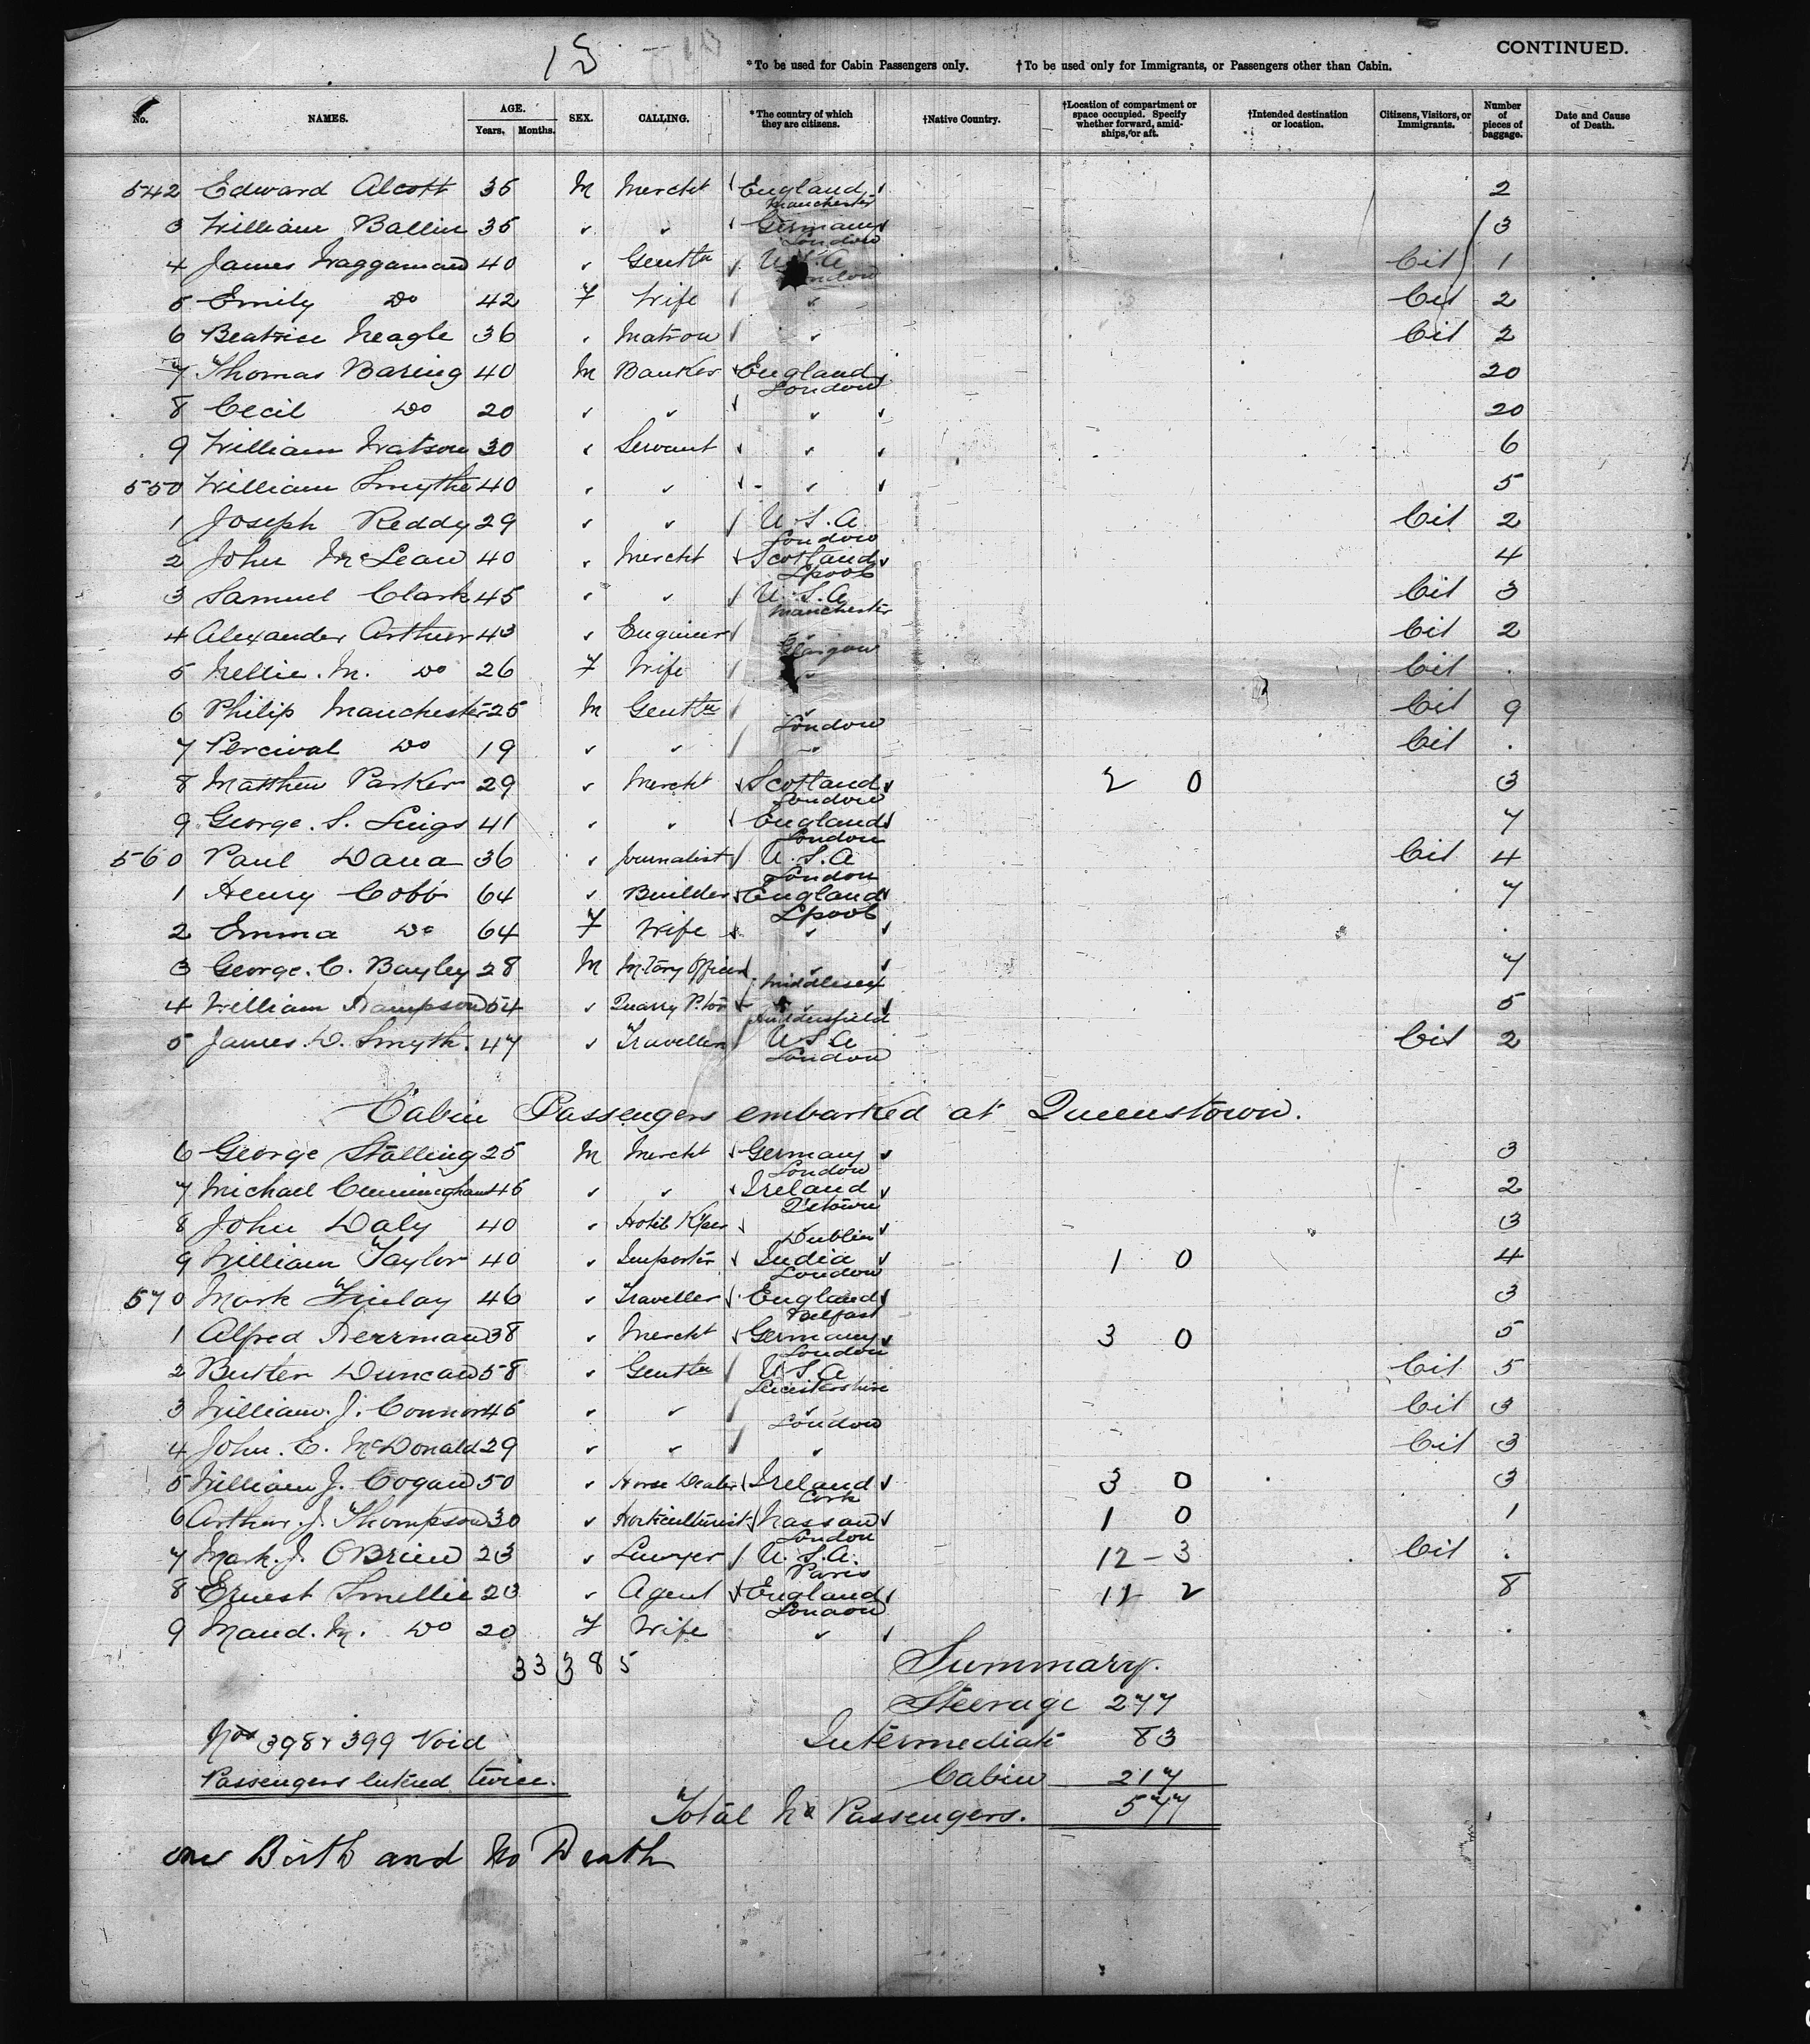 15
CONTINUED.
*To be used for Cabin Passengers only. †To be used only for Immigrants, or Passengers other than Cabin.
No. NAMES. AGE. Years. Months. SEX. CALLING. *The country of which they are citizens. †Native Country. †Location of compartment or space occupied. Specify whether forward, amidships, or aft. †Intended destination or location. Citizens, Visitors, or Immigrants. Number of pieces of baggage. Date and Cause of Death.
542 Edward Alcott 35 M Mercht England Manchester 2
3 William Ballin 35 " " Germany London 3
4 James Waggaman 40 " Gentln U.S.A London Cit 1
5 Emily Do 42 F Wife " Cit 2
6 Beatrice Neagle 36 " Matron " Cit 2
7 Thomas Baring 40 M Banker England London 20
8 Cecil Do 20 " " " 20
9 William Watson 30 " Servant " 6
550 William Smythe 40 " " " 5
1 Joseph Reddy 29 " " U.S.A London Cit 2
2 John McLean 40 " Mercht Scotland Lpool 4
3 Samuel Clark 45 " " U.S.A Manchester Cit 3
4 Alexander Arthur 43 " Engineer " Glasgow Cit 2
5 Nellie. M. Do 26 F Wife " Cit .
6 Philip Manchester 25 M Gentln " London Cit 9
7 Percival Do 19 " " " Cit .
8 Matthew Parker 29 " Mercht Scotland London 2 0 3
9 George. S. 41 " " England London 7
560 Paul Dana 36 " Journalist U.S.A London Cit 4
1 Henry Cobb 64 " Builder England Lpool 7
2 Emma Do 64 F Wife " .
3 George. C. Bayley 28 M Mltary Officer " Middlesex 7
4 William Hampson 54 " Quarry P.tor " Huddersfield 5
5 James. D. Smyth. 47 " Traveller U.S.A London Cit 2
Cabin Passengers embarked at Queenstown.
6 George Stalling 25 M Mercht Germany London 3
7 Michael Cunningham 45 " " Ireland Q'town 2
8 John Daly 40 " Hotel K'per " Dublin 3
9 William Taylor 40 " Importer India London 1 0 4
570 Mark Finlay 46 " Traveller England Belfast 3
1 Alfred Herrman 38 " Mercht Germany London 3 0 5
2 Butler Duncan 58 " Gentln U.S.A Leicestershire Cit 5
3 William. J. Connor 45 " " " London Cit 3
4 John. E. McDonald 29 " " " Cit 3
5 William J. Cogan 50 " Horse Dealer Ireland Cork 3 0 3
6 Arthur. J. Thompson 30 " Horticulturist Nassau London 1 0 1
7 Mark. J. OBrien 23 " Lawyer U.S.A. Paris 12 - 3 Cit .
8 Ernest Smellie 23 " Agent England London 11 2 8
9 Maud. M. Do 20 F Wife " .
33 385
Summary.
Steerage 277
Nos 398 & 399 Void Intermediate 83
Passengers entered twice. Cabin 217
Total No Passengers. 577
one Birth and No Death